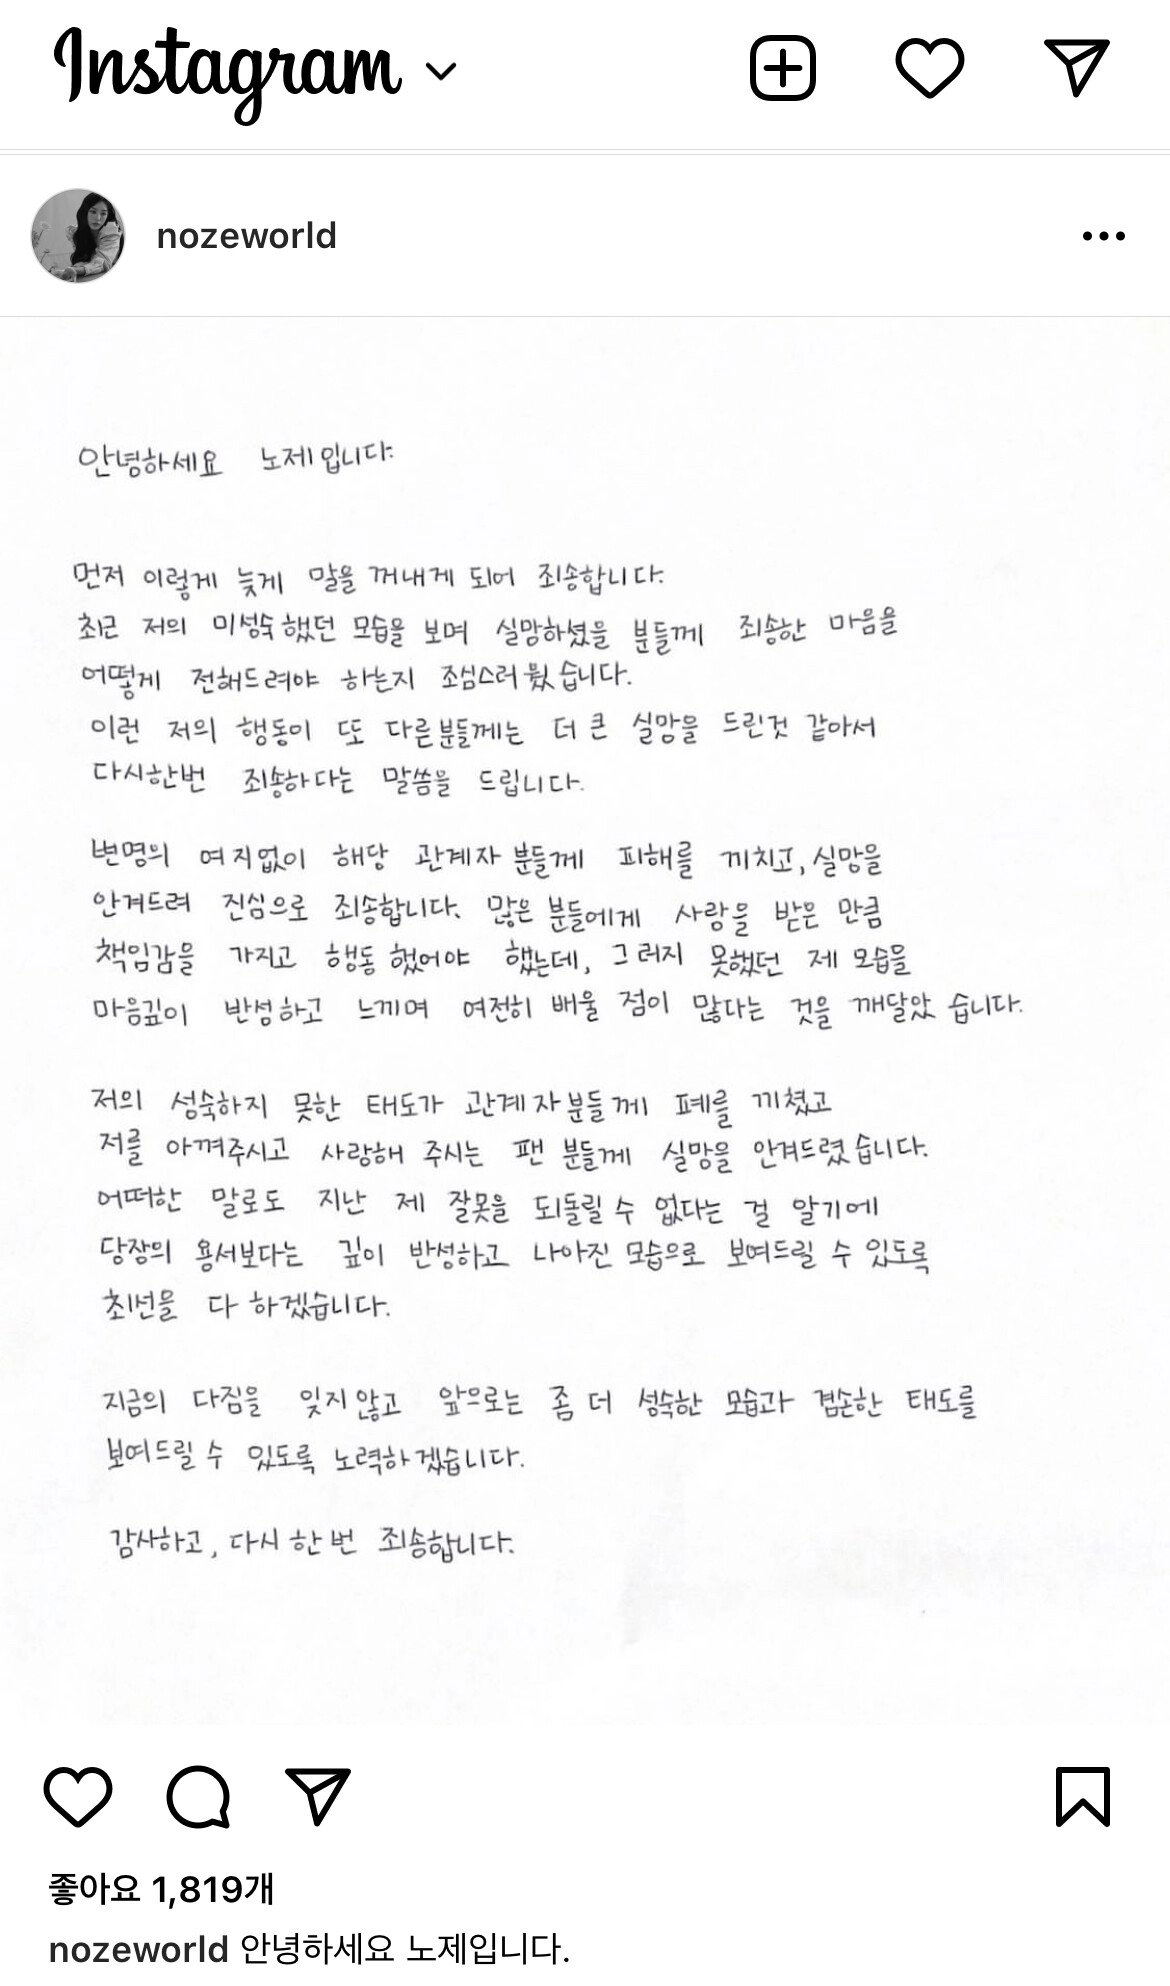 Instagram
nozeworld
안녕하세요 노제입니다.
먼저 이렇게 늦게 말을 꺼내게 되어 죄송합니다.
최근 저의 미성숙했던 모습을 보며 실망하셨을 분들께 죄송한 마음을
어떻게 전해드려야 하는지 조심스러웠습니다.
이런 저의 행동이 또 다른분들께는 더 큰 실망을 드린것 같아서
다시한번 죄송하다는 말씀을 드립니다.
변명의 여지없이 해당 관계자 분들께 피해를 끼치고, 실망을
안겨드려 진심으로 죄송합니다. 많은 분들에게 사랑을 받은 만큼
책임감을 가지고 행동 했어야 했는데, 그러지 못했던 제 모습을
마음깊이 반성하고 느끼며 여전히 배울 점이 많다는 것을 깨달았습니다.
저의 성숙하지 못한 태도가 관계자분들께 폐를 끼쳤고
저를 아껴주시고 사랑해 주시는 팬 분들께 실망을 안겨드렸습니다.
어떠한 말로도 지난 제 잘못을 되돌릴 수 없다는 걸 알기에
당장의 용서보다는 깊이 반성하고 나아진 모습으로 보여드릴 수 있도록
최선을 다 하겠습니다.
지금의 다짐을 잊지않고 앞으로는 좀 더 성숙한 모습과 겸손한 태도를
보여드릴 수 있도록 노력하겠습니다.
감사하고, 다시 한 번 죄송합니다.
좋아요 1,819개
nozeworld 안녕하세요 노제입니다.